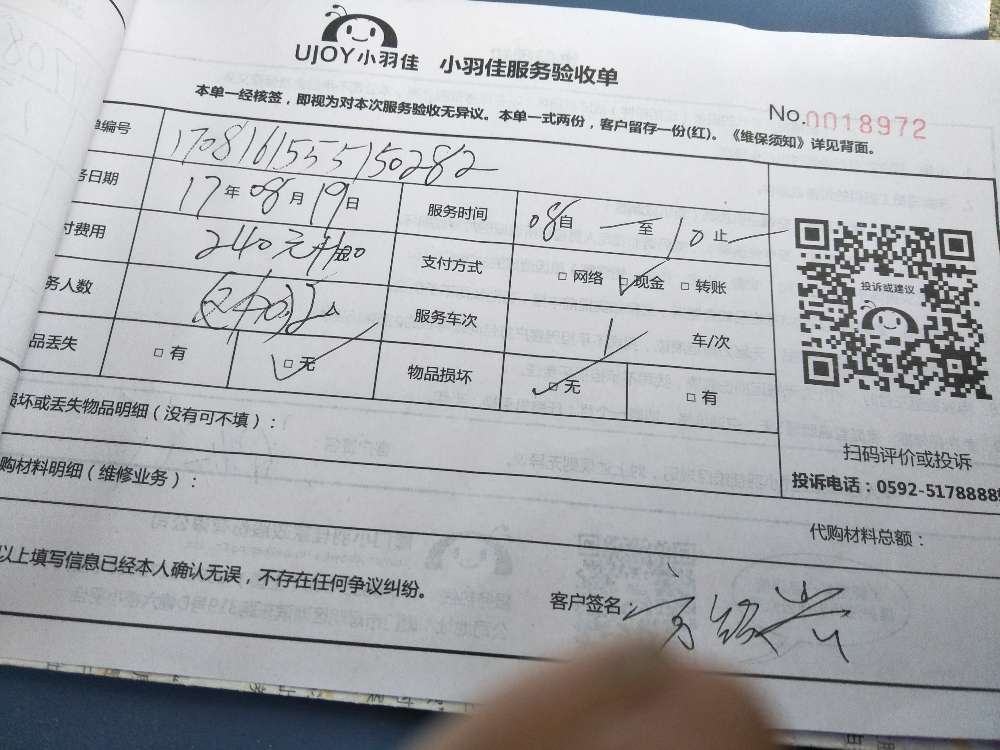 UJOY小羽佳 小羽佳服务验收单
本单一经核签，即视为对本次服务验收无异议。本单一式两份，客户留存一份(红)。《维保须知》详见背面。
No.0018972
单编号 170816155515028 2
务日期 17年08月19日 服务时间 08自 至 10止
付费用 240元 支付方式 □ 网络 □ 现金 □ 转账
务人数 服务车次 1 车/次
品丢失 □ 有 □ 无 物品损坏 □ 无 □ 有
损坏或丢失物品明细（没有可不填）：
购材料明细（维修业务）：
投诉或建议
扫码评价或投诉
投诉电话：0592-5178888
代购材料总额：
以上填写信息已经本人确认无误，不存在任何争议纠纷。
客户签名：